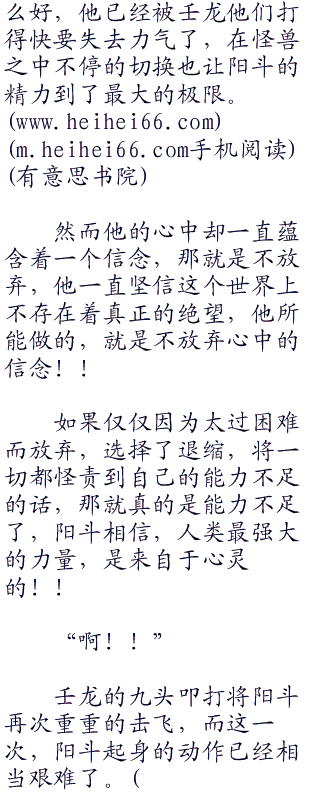 么好，他已经被壬龙他们打
得快要失去力气了，在怪兽
之中不停的切换也让阳斗的
精力到了最大的极限。
(www.heihei66.com)
(m.heihei66.com手机阅读)
(有意思书院)
然而他的心中却一直蕴
含着一个信念，那就是不放
弃，他一直坚信这个世界上
不存在着真正的绝望，他所
能做的，就是不放弃心中的
信念！！
如果仅仅因为太过困难
而放弃，选择了退缩，将一
切都怪责到自己的能力不足
的话，那就真的是能力不足
了，阳斗相信，人类最强大
的力量，是来自于心灵
的！！
“啊！！”
壬龙的九头叩打将阳斗
再次重重的击飞，而这一
次，阳斗起身的动作已经相
当艰难了。(